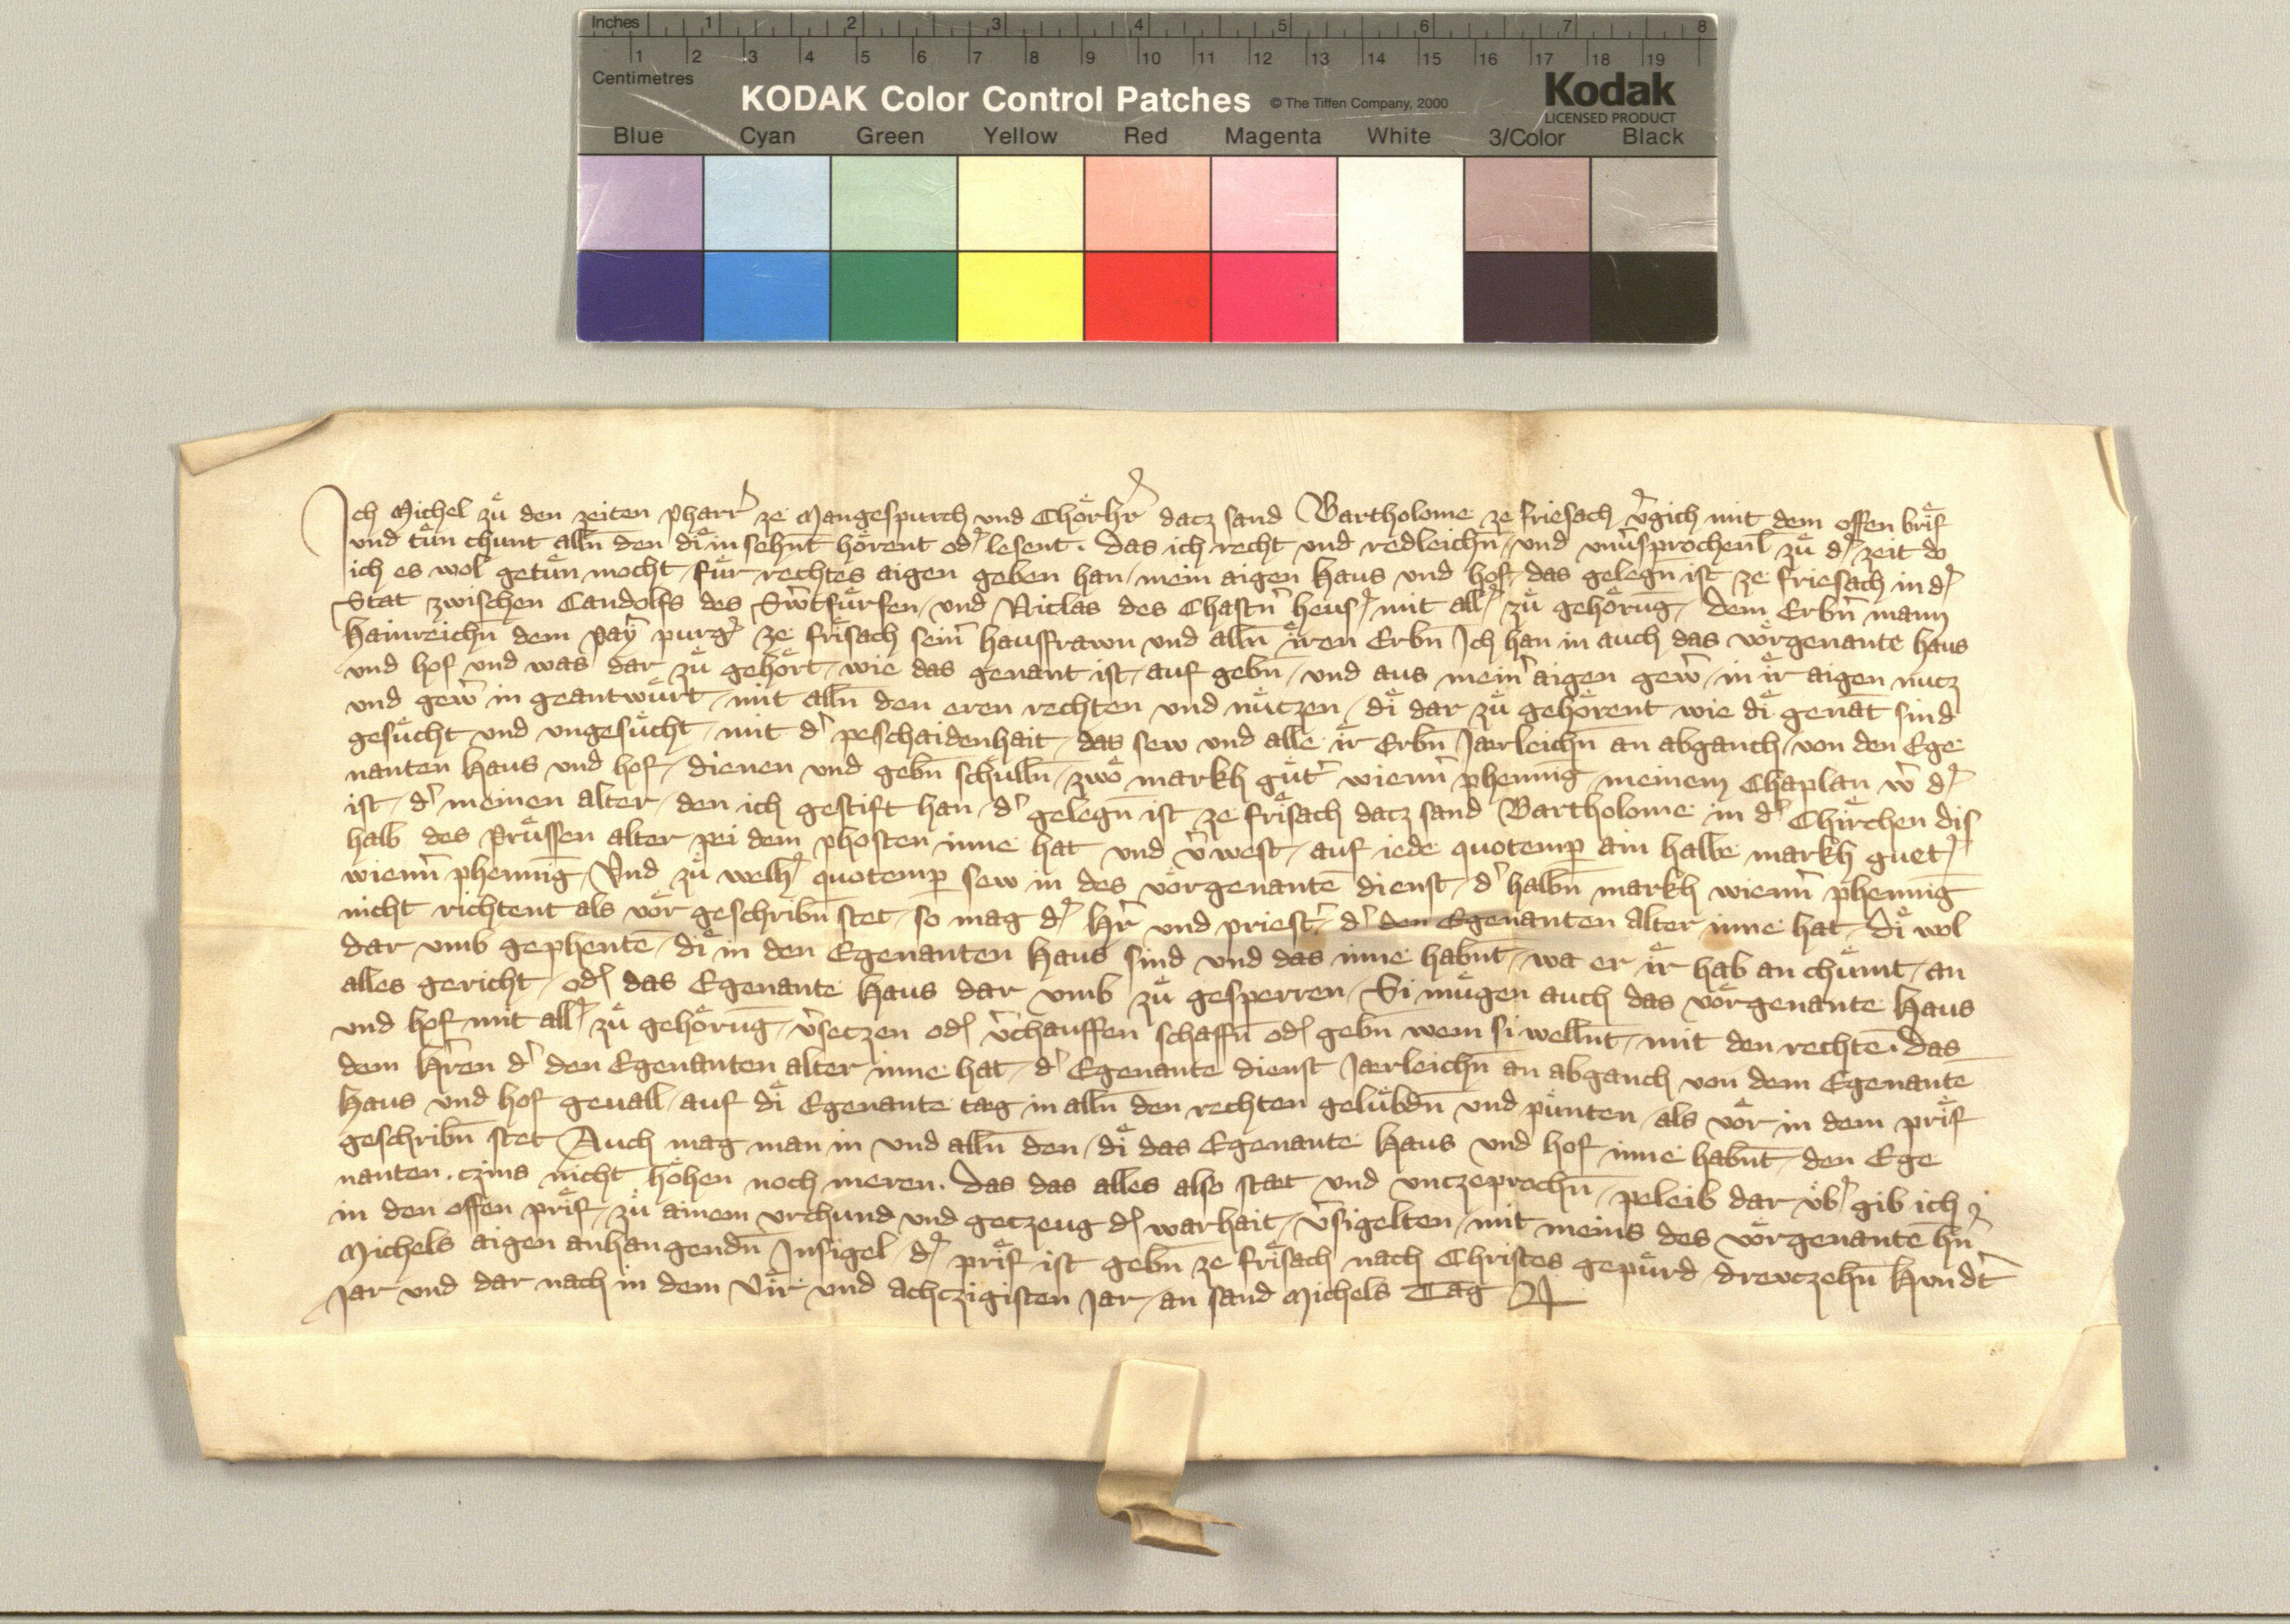 Inches 1 2 3 4 5 6 7 8
1 2 3 4 5 6 7 8 9 10 11 12 13 14 15 16 17 18 19
Centimetres
KODAK Color Control Patches © The Tiffen Company, 2000 Kodak
LICENSED PRODUCT
Blue Cyan Green Yellow Red Magenta White 3/Color Black
Ich Michel zuͤ den zeiten pharr̛ ze Mangespurch und Choͤrhr̛ dacz sand Bartholome ze friesach v̛gich mit dem offen briͤf
und tuͤn chunt alln̄ den diͤ in sehnt̄ hoͤrent od̛ lesent. Das ich recht und redleichn̄ und unv̛sprochenl̄ zuͤ d̛ zeit do
ich es wol getuͤn mocht fuͤr rechtes aigen geben han mein aigen Haus und hof das gelegn̄ ist ze friesach in d̛
Stat zwischen Candolfs des und Niclas des Chastn̛ heus̛ mit all̛ zuͤ gehoͤruḡ dem Erbn̄ mann
Hainreichn̄ dem Pay̛ purg̛ ze friͤsach sein̛ hausfrawn und alln̄ iͤren Erbn̄ Ich han in auch das voͤrgenante haus
und hof und was dar zuͤ gehoͤrt wie das genant ist auf gebn̄ und aus mein̛ aigen gew̛ in iͤr aigen nucz
und gew̛ in geantwuͤrt mit alln̄ den eren rechten und nuͤczen diͤ dar zuͤ gehoͤrent wie diͤ genāt sind
gesuͤcht und ungesuͤcht mit d̛ peschaidenhait das sew und alle iͤr Erbn̄ Jaerleichn̄ an abganch von den Ege
nanten Haus und hof dienen und gebn̄ schuͤlln̄ zwoͤ markh guͤt̛ wienn̛ phenninḡ meinem Chaplan w̛ d̛
ist d̛ meinen alter den ich gestift han d̛ gelegn̄ ist ze friͤsach dacz sand Bartholome in d̛ Chiͤrchen dis
halb des Pruͤssen alter pei dem phosten inne hat und v̛west auf iede quotemp̄ ain halbe markh guet̛
wienn̛ phenninḡ Und zuͤ welh̛ quotemp̄ sew in des voͤrgenantē dienst d̛ halbn̄ markh wienn̛ phenninḡ
nicht richtent als voͤr geschribn̄ stet so mag d̛ Hr̛ und priest̛ d̛ den Egenanten alter inne hat diͤ wol
dar umb gephentē diͤ in den Egenanten Haus sind und das inne habnt̄ wa er iͤr hab an chuͤmt an
alles gericht od̛ das Egenante Haus dar umb zuͤ gesperren Si muͤgen auch das voͤrgenante Haus
und hof mit all̛ zuͤ gehoͤruḡ v̛seczen od̛ v̛chauffen schaffn̄ od̛ gebn̄ wem si wellnt̄ mit den rechtē. Das
dem Hr̛en d̛ den Egenanten alter inne hat d̛ Egenante dienst Jaerleichn̄ an abganch von dem Egenante
Haus und hof geuall auf diͤ Egenante tag in alln̄ den rechten geluͤbdn̄ und puͤnten als voͤr in dem priͤf
geschribn̄ stet Auch mag man in und alln̄ den diͤ das Egenante Haus und hof inne habnt̄ den Ege
nanten. czins nicht hoͤhen noch meren. Das das alles also staet und unczeprochn̄ peleib dar uͤb̛ gib ich
in den offen priͤf zuͤ ainem urchund und geczeug d̛ warhait v̛sigelten mit meins des voͤrgenantē hn̄
Michels aigen anhangendn̄ Insigel d̛ priͤf ist gebn̄ ze friͤsach nach Christes gepuͤrd dreuczehn̄ Hundt̛
Jar und dar nach in dem Viͤr und achczigisten Jar an sand Michels Tag